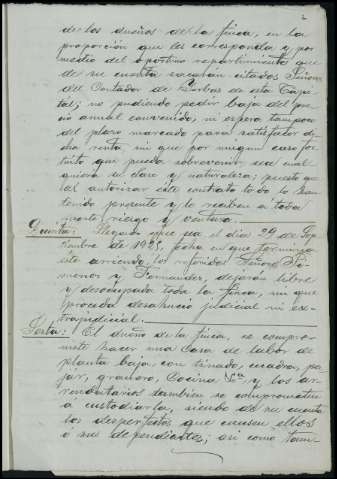 de los dueños de la finca, en la
proporción que les corresponda y por
medio del oportuno repartimiento que
de su cuenta sacarán citados Señores
del Contador de Yerbas de esta Capi-
tal; no pudiendo pedir baja del pre-
cio anual convenido, ni espera tampoco
del plazo marcado para satisfacer di-
cha renta ni que por ningun caso for-
tuito que pueda sobrevenir sea cual
quiera su clase y naturaleza; puesto que
al autorizar este contrato todo lo han
tenido presente y lo reciben a toda
suerte riesgo y ventura.
Quinta: Llegado que sea el dia 29 de Sep-
tiembre de 1925, fecha en que termina
este arriendo, los referidos Señores
y Fernandez, dejarán libre
y desocupada toda la finca, sin que
proceda desahucio judicial ni ex-
trajudicial.
Sexta: El dueño de la finca, se compro-
mete hacer una Casa de labor de
planta baja, con tinado, cuadra, pa-
jar, granero, Cocina &ª y los ar-
rendatarios tambien se comprometen
a custodiarla, siendo de su cuenta
los desperfectos que causen ellos
ó sus dependientes; asi como tam-